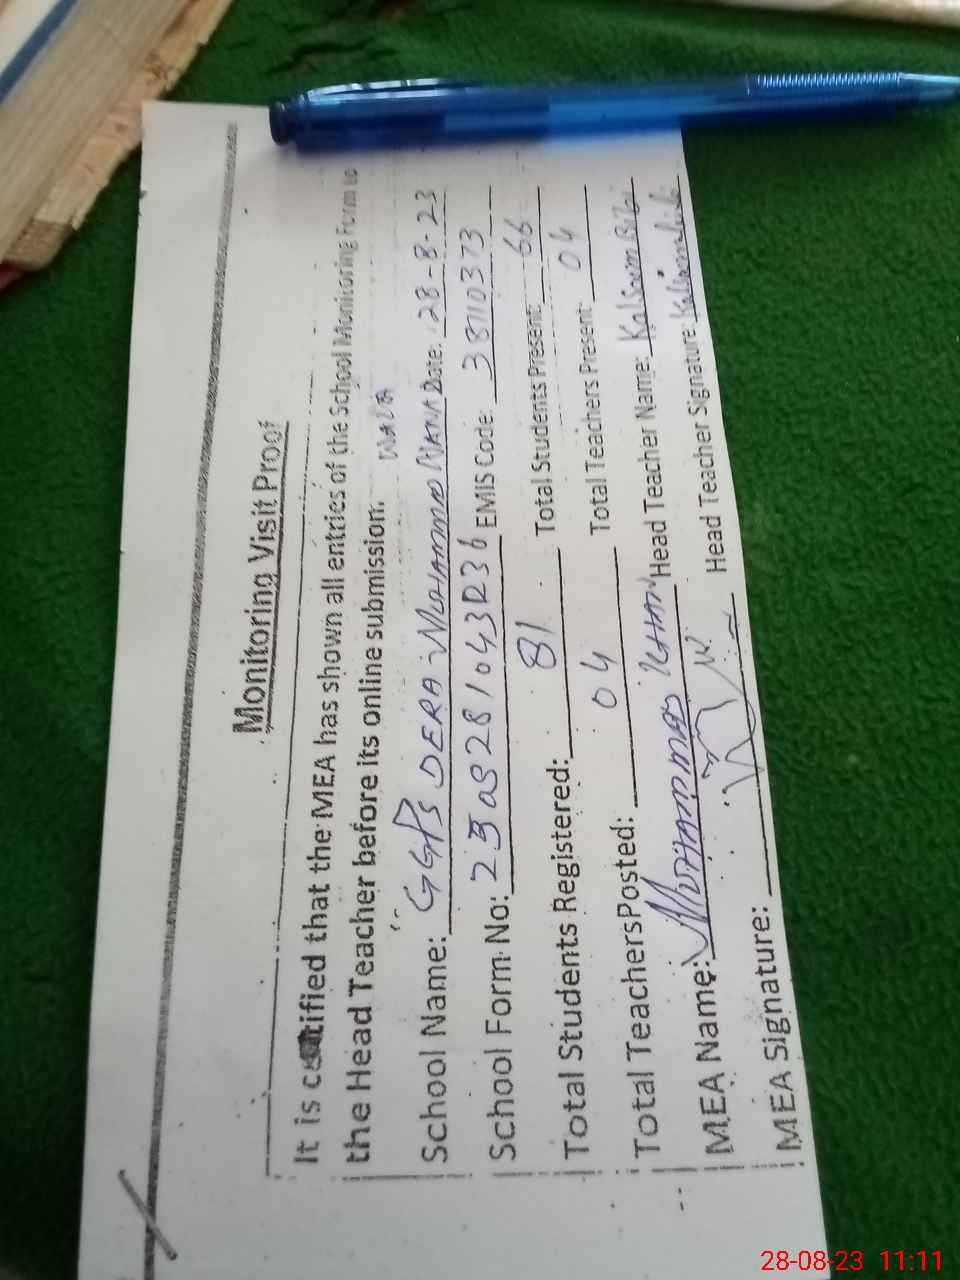 Monitoring Visit Proof
It is certified that the MEA has shown all entries of the School Monitoring Form to
the Head Teacher before its online submission.
School Name: GGPS DERA MUHAMMAD NAWAZ Date: 28-8-23
School Form No: EMIS Code: 38110373
Total Students Registered: 81 Total Students Present: 66
Total Teachers Posted: 04 Total Teachers Present: 04
MEA Name: MUHAMMAD KHAN Head Teacher Name: Kalsoom Bibi
MEA Signature: Head Teacher Signature:
28-08-23 11:11